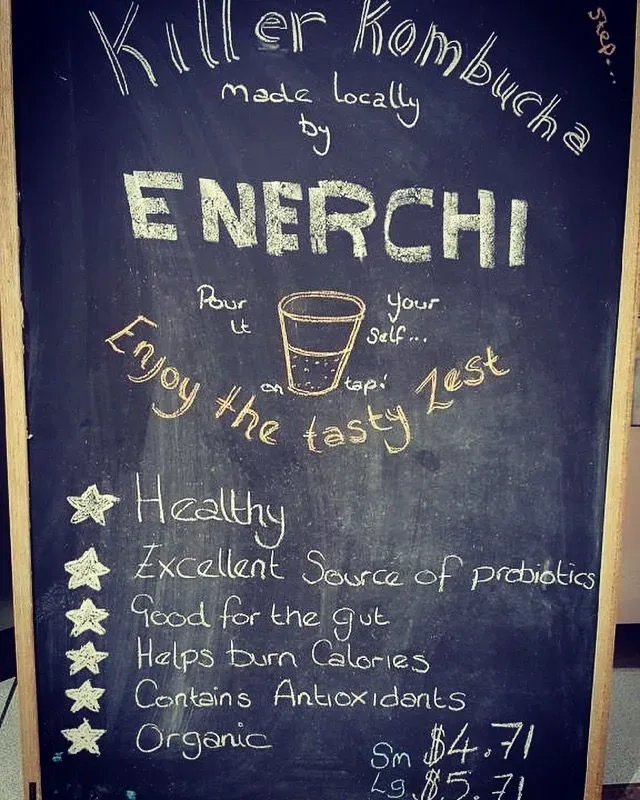 Step...
Killer Kombucha
made locally
by
ENERCHI
Pour your
it self...
on tap!
Enjoy the tasty Zest
Healthy
Excellent Source of probiotics
Good for the gut
Helps burn Calories
Contains Antioxidants
Organic
Sm $4.71
Lg $5.71